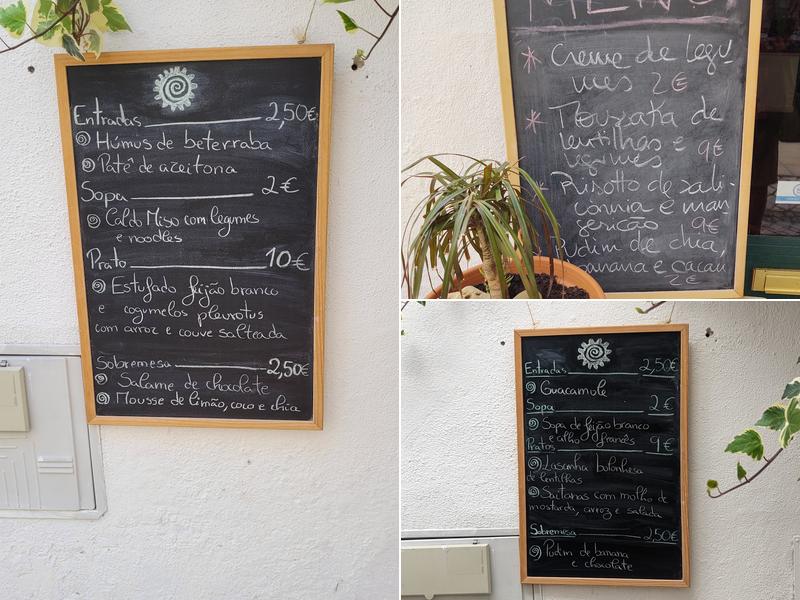 Entradas 2,50€
Húmus de beterraba
Patê de azeitona
Sopa 2€
Caldo Miso com legumes
e noodles
Prato 10€
Estufado feijão branco
e cogumelos pleurotus
com arroz e couve salteada
Sobremesa 2,50€
Salame de chocolate
Mousse de limão, coco e chia
MENU
* Creme de legu-
mes 2€
* Mouzaka de
lentilhas e
legumes 9€
* Risotto de sali-
córnia e man-
gericão 9€
Pudim de chia,
banana e cacau
2€
Entradas 2,50€
Guacamole
Sopa 2€
Sopa de feijão branco
e alho francês
Pratos 9€
Lasanha bolonhesa
de lentilhas
Saitanas com molho de
mostarda, arroz e salada
Sobremesa 2,50€
Pudim de banana
e chocolate